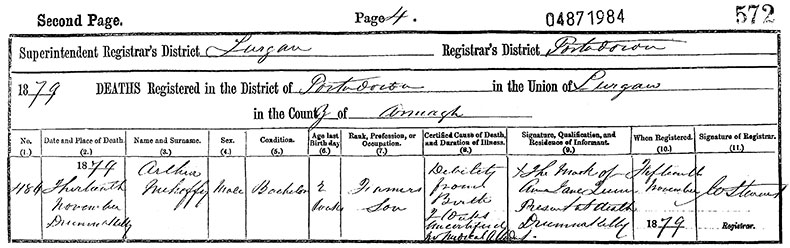 Second Page.
Page 4.
04871984
572
Superintendent Registrar's District Lurgan Registrar's District Portadown
1879 DEATHS Registered in the District of Portadown in the Union of Lurgan
in the County of Armagh
No. (1.)
Date and Place of Death. (2.)
Name and Surname. (3.)
Sex. (4.)
Condition. (5.)
Age last Birthday (6.)
Rank, Profession, or Occupation. (7.)
Certified Cause of Death, and Duration of Illness. (8.)
Signature, Qualification, and Residence of Informant. (9.)
When Registered. (10.)
Signature of Registrar. (11.)
1879
Thirteenth
November
Arthur
Male
Bachelor
2
weeks
Farmers
Son
Debility
from
Birth
2 weeks
uncertified
no Medical
X The Mark of
Present at death
Fifteenth
November
1879
Registrar.